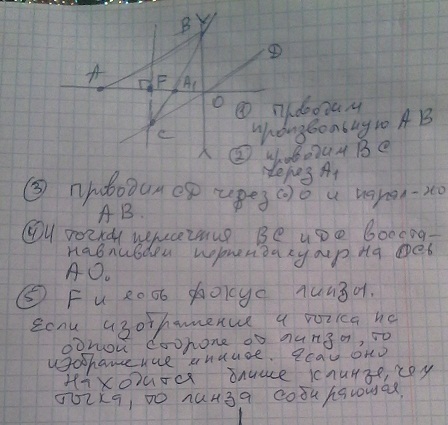 В
D
А
F
А1
О
С
① проводим
произвольную АВ
② проводим ВС
через А1
③ проводим СD через (·) О и парал-но
АВ.
④ Из точки пересечения ВС и DО восста-
навливаем перпендикуляр на ось
АО.
⑤ F и есть фокус линзы.
Если изображение и точка на
одной стороне от линзы, то
изображение мнимое. Если оно
находится ближе к линзе, чем
точка, то линза собирающая.